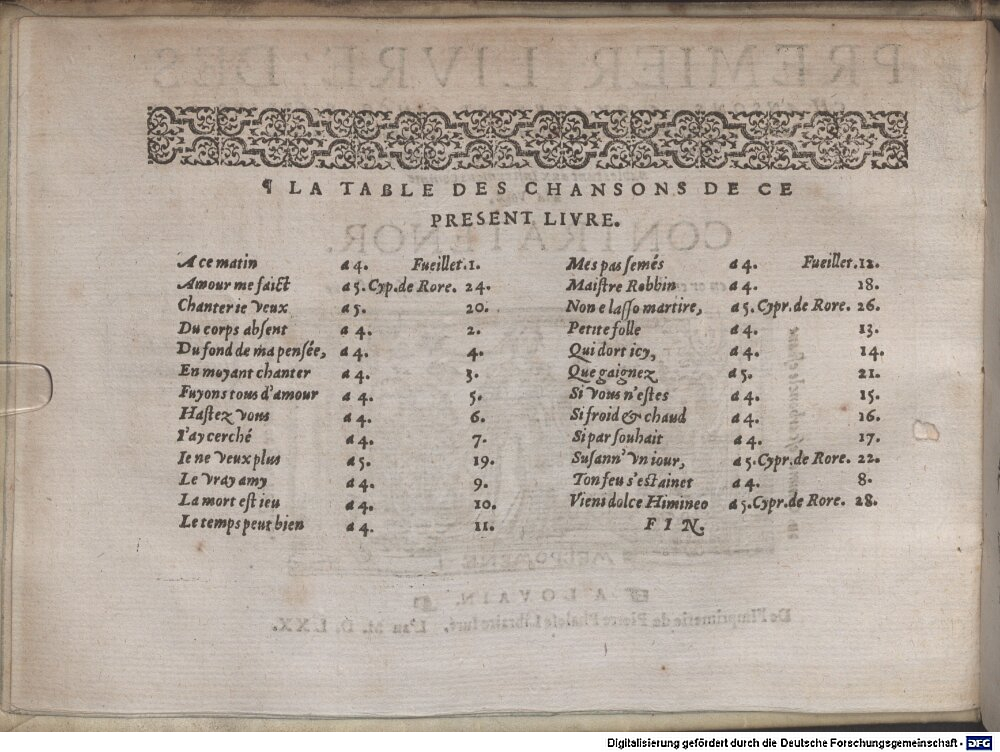 ¶ LA TABLE DES CHANSONS DE CE
PRESENT LIVRE.
A ce matin a 4. Fueillet.1.
Amour me faict a 5. Cyp. de Rore. 24.
Chanter ie veux a 5. 20.
Du corps absent a 4. 2.
Du fond de ma pensée, a 4. 4.
En moyant chanter a 4. 3.
Fuyons tous d'amour a 4. 5.
Hastez vous a 4. 6.
I'ay cerché a 4. 7.
Ie ne veux plus a 5. 19.
Le vray amy a 4. 9.
La mort est ieu a 4. 10.
Le temps peut bien a 4. 11.
Mes pas semés a 4. Fueillet.12.
Maistre Robbin a 4. 18.
Non e lasso martire, a 5. Cypr. de Rore. 26.
Petite folle a 4. 13.
Qui dort icy, a 4. 14.
Que gaignez a 5. 21.
Si vous n'estes a 4. 15.
Si froid & chaud a 4. 16.
Si par souhait a 4. 17.
Susann' vn iour, a 5. Cypr. de Rore. 22.
Ton feu s'estainct a 4. 8.
Vieni dolce Himineo a 5. Cypr. de Rore. 28.
FIN.
Digitalisierung gefördert durch die Deutsche Forschungsgemeinschaft - DFG